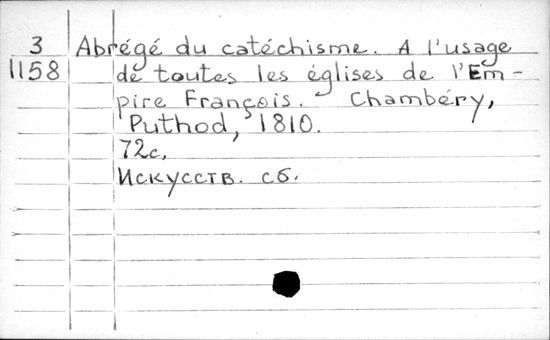 3 Abrégé du catéchisme. A l'usage
1158 de toutes les églises de l'Em-
pire François. - Chambéry,
Puthod, 1810.
72c.
Искусств. сб.